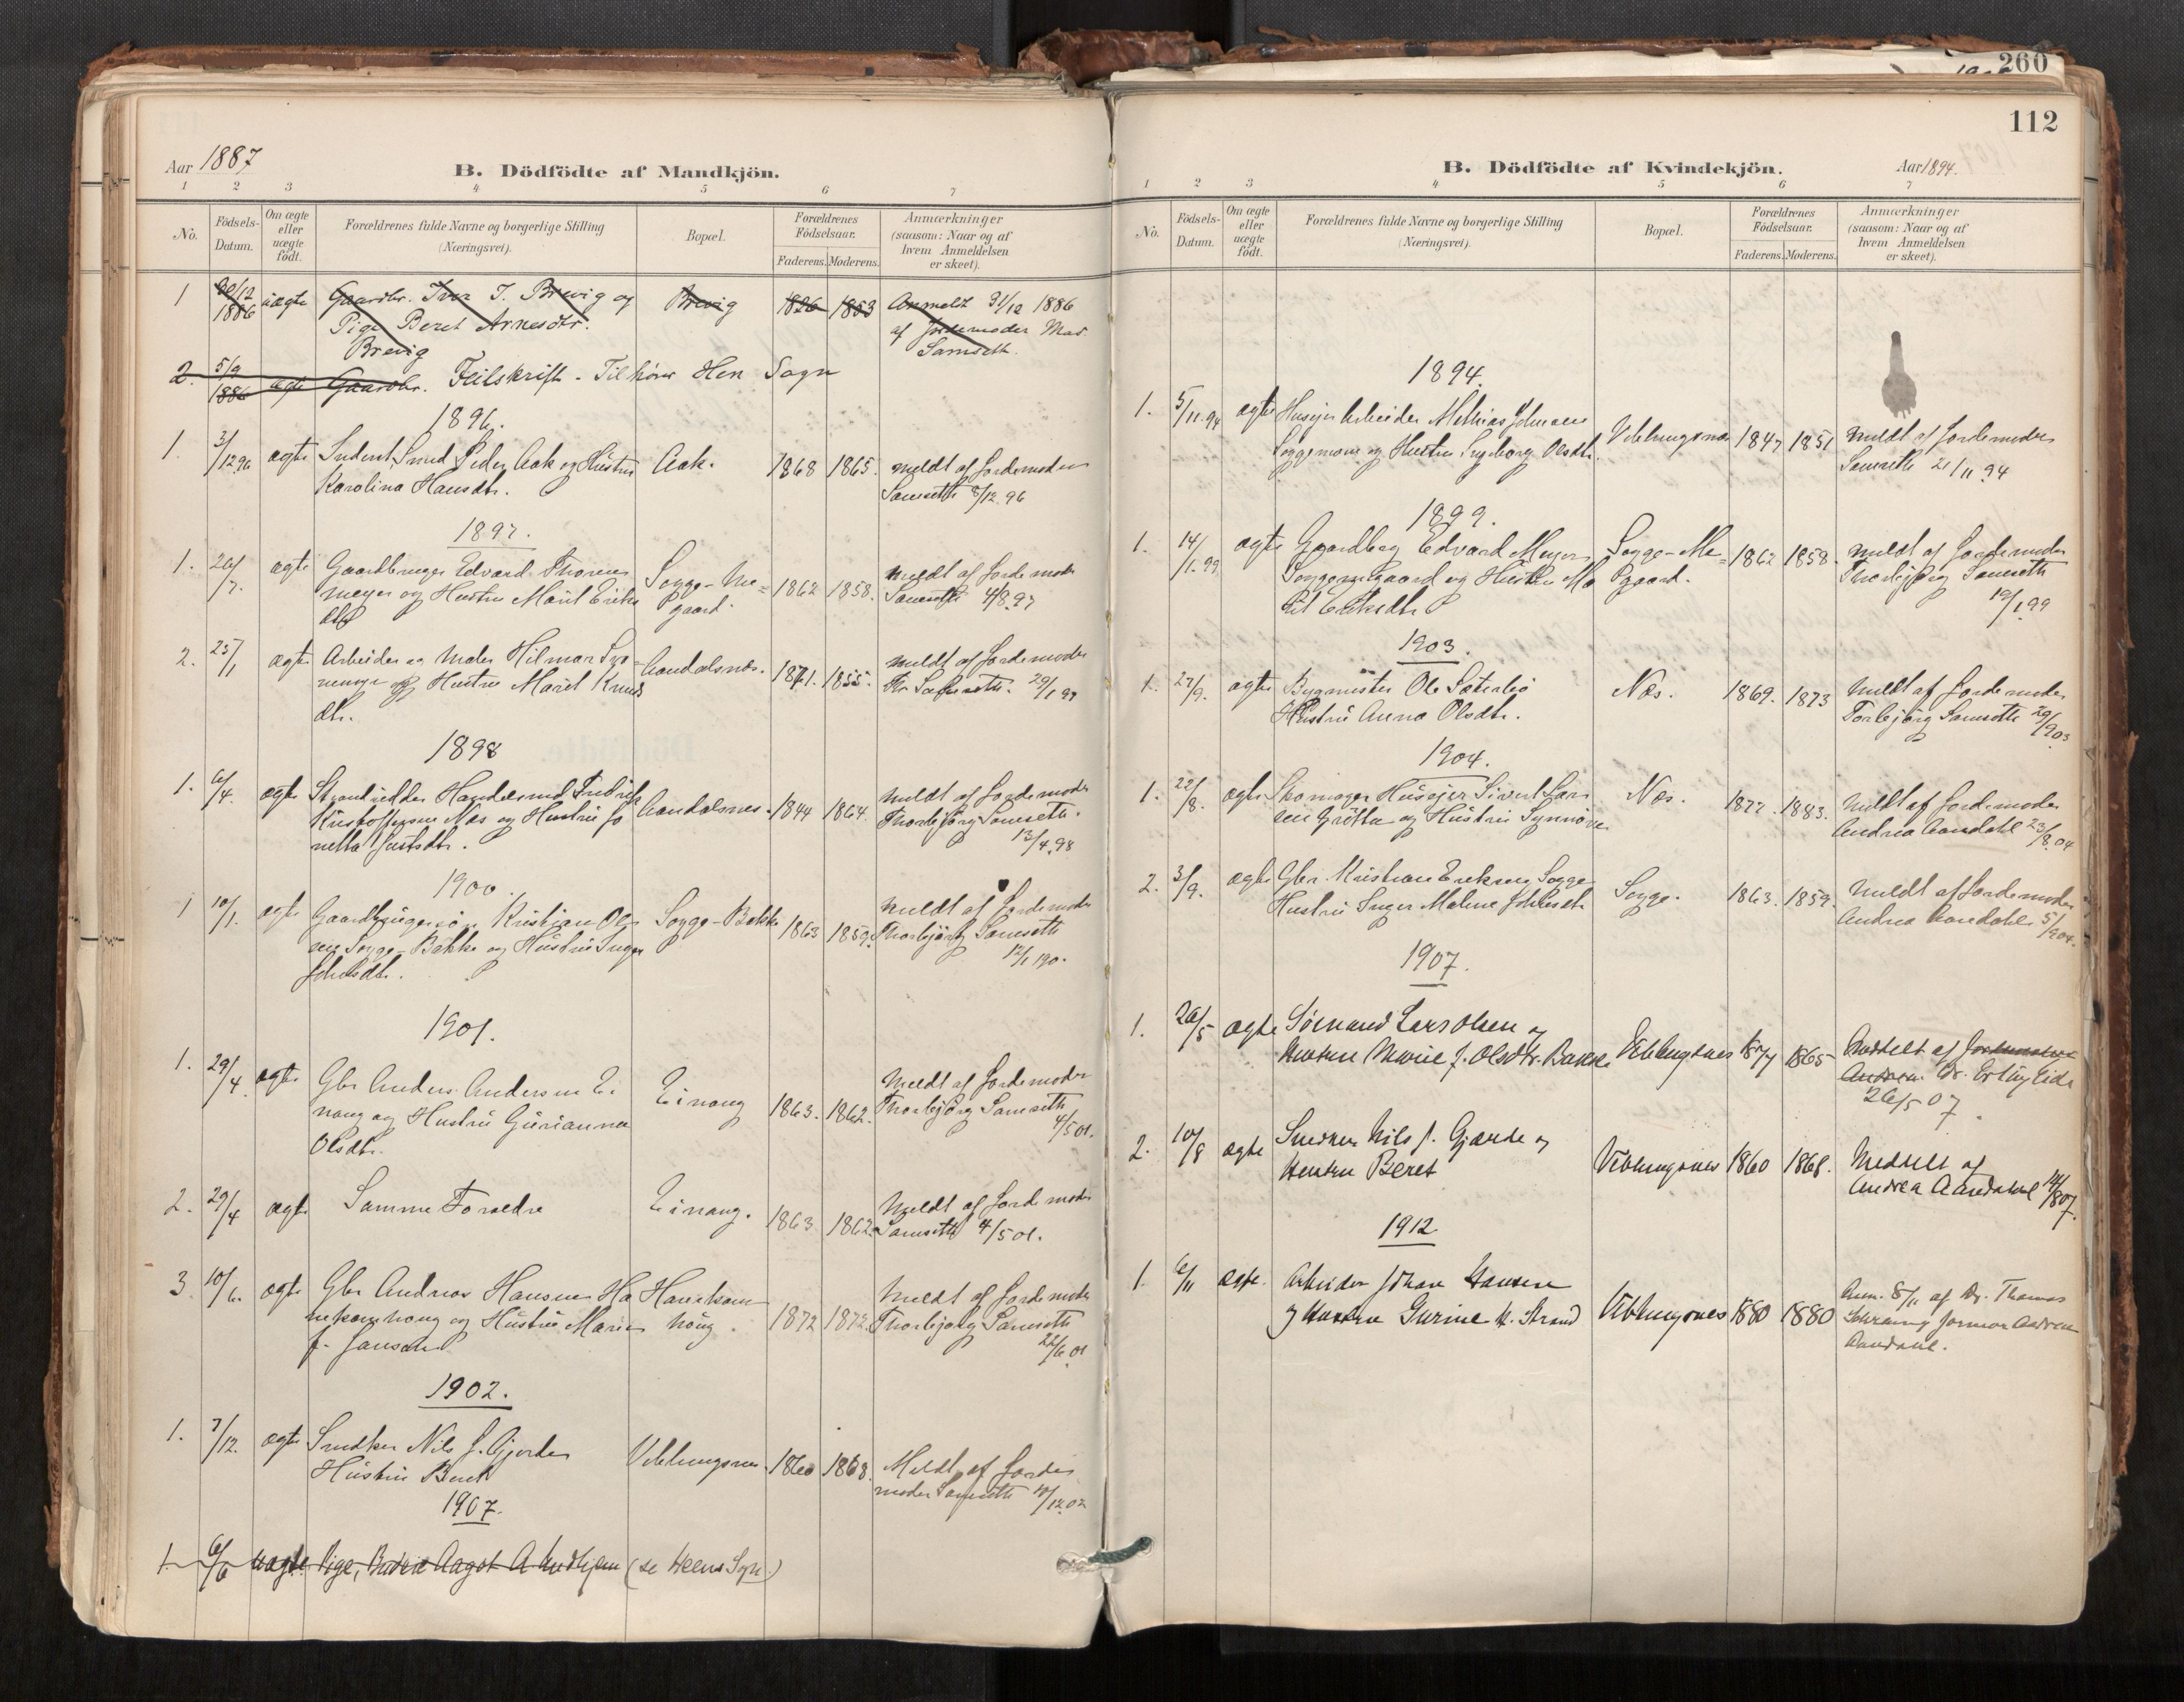 260
Aar 1887
B. Dödfödte af Mandkjön.
1 2 3 4 5 6 7
No.
Födsels-
Datum.
Om ægte
eller
uægte
födt.
Forældrenes fulde Navne og borgerlige Stilling
(Næringsvei).
Bopæl.
Forældrenes
Födselsaar.
Faderens. Moderens.
Anmærkninger
(saasom: Naar og af
hvem Anmeldelsen
er skeet).
1 1886 uægte Gaardbr. Iver I. Brevig og Brevig 1826 1853 Anmeldt 31/12 1886
Pige Beret Arnesdtr. af Jordemoder Mad.
Brevig Samseth.
2. 5/9 1886 ægte Gaardbr. Feilskrift. Tilhører Hen Sogn
1896.
1. 3/12 96 ægte Smed Peder Aak og Hustru Aak. 1868 1865. meldt af Jordemoder
Karolina Hansdtr. Samseth 8/12 96
1897.
1. 20/7. ægte Gaardbruger Edvard Thoren Sogge-Me= 1862 1858. meldt af Jordemoder
meyer og Hustru Marit Eriks gaard. Samseth 4/8 97
dtr
2. 25/1 ægte Arbeider og Maler Hilmar Aandalsnæs. 1871. 1855. meldt af Jordemoder
og Hustru Marit Knuds Samseth. 29/1 97
dtr.
1898
1. 6/4. ægte Strandsidder Handelsmd Fredrik Aandalsnes. 1844 1864. meldt af Jordemoder
Kristoffersen Næs og Hustru Jo Thorbjørg Samseth.
netta Justsdtr. 13/4.98
1900.
1 10/1. ægte Gaardbruger Kristian Ol Sogge-Bakke 1863 1859. meldt af Jordemoder
sen Sogge-Bakke og Hustru Inger Thorbjørg Samseth
Johsdtr. 12/1 190
1901.
1. 29/4. ægte Gbr Anders Andersen Ei Einang 1863. 1862. Meldt af Jordemoder
nang og Hustru Gurianna Thorbjørg Samseth
Olsdtr. 4/5 01.
2. 29/4 ægte Samme Forældre Einang. 1863 1862. Meldt af Jordemoder
Samseth 4/5 01.
3. 10/6. ægte Gbr Andreas Hansen Ha Hanekam 1872 1872. Meldt af Jordemoder
nekamhaug og Hustru Maria haug. Thorbjørg Samseth
J. Jansdtr 22/6 01
1902.
1. 7/12. ægte Snedker Nils J. Gjerde Veblungsnes. 1860 1868. Meldt af Jorde
Hustru Beret moder Samseth 10/12.02
1907.
1. 6/6 uægte Pige, Aagot A (se Heens Sgn.)
112
B. Dödfödte af Kvindekjön.
Aar 1894.
1 2 3 4 5 6 7
No.
Födsels-
Datum.
Om ægte
eller
uægte
födt.
Forældrenes fulde Navne og borgerlige Stilling
(Næringsvei).
Bopæl.
Forældrenes
Födselsaar.
Faderens. Moderens.
Anmærkninger
(saasom: Naar og af
hvem Anmeldelsen
er skeet).
1894.
1. 5/11.94 ægte Husejer Arbeider Mathias Johnsen Veblungsnes 1847 1851 meldt af Jordemoder
Soggemoen og Hustru Ingeborg Olsdtr. Samseth 21/11 94
1899.
1. 14/1.99 ægte Gaardbrg Edvard Meyer Sogge-Me= 1862 1858. meldt af Jordemoder
Soggemegaard og Hustru Ma gaard. Thorbjørg Samseth
rit Eriksdtr 19/1 99
1903.
1. 27/9. ægte Bygmester Ole Sæterbø Næs. 1869. 1873 Meldt af Jordemoder
Hustru Anna Olsdtr. Torbjørg Samseth 29/9 03
1904.
1. 22/8. ægte Skomager Husejer Sivert Lars Næs. 1877. 1883. Meldt af Jordemoder
sen Grötta og Hustru Synnöve Andrea Aandahl 23/8.04
2. 3/9. ægte Gbr. Kristian Eriksen Sogge Sogge. 1863. 1859. Meldt af Jordemoder
Hustru Inger Malene Johnsdtr Andrea Aandahl 5/9 04.
1907.
1. 26/5 ægte Sömand Lars Olsen og Veblungsnes 1874 1865 Anmeldt af Jordemoder
Hustru Marie J. Olsdtr. Bakke Andrea Dr. Erling Eide
26/5 07
2. 10/8 ægte Snedker Nils J. Gjærde og Veblungsnes 1860 1868. Meddelt af
Hustru Beret Andrea Aandahl 14/8 07.
1912
1. 6/11 ægte. Arbeider Johan Hansen Veblungsnes 1880 1880 Anm. 8/11 af Dr. Thomas
og Hustru Gurine M. Strand Jormor Andrea
Aandahl.